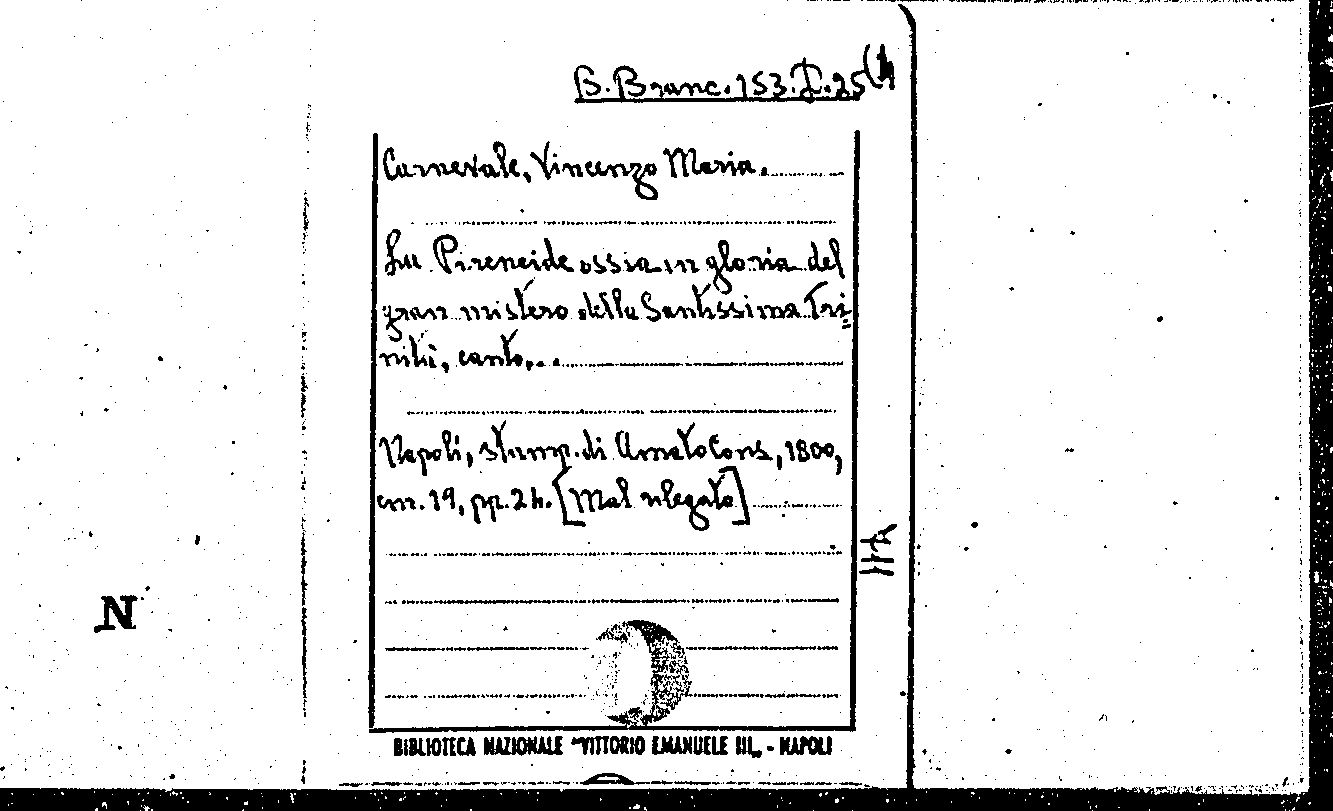 B. Branc. 153.I.25(4
Carnevale, Vincenzo Maria.
La Pireneide ossia in gloria del
gran mistero della Santissima Tri=
nità, canto...
Napoli, stamp. di Amato Cons, 1800,
cm. 19, pp. 24. [Mal rilegato]
N
BIBLIOTECA NAZIONALE "VITTORIO EMANUELE III„ - NAPOLI